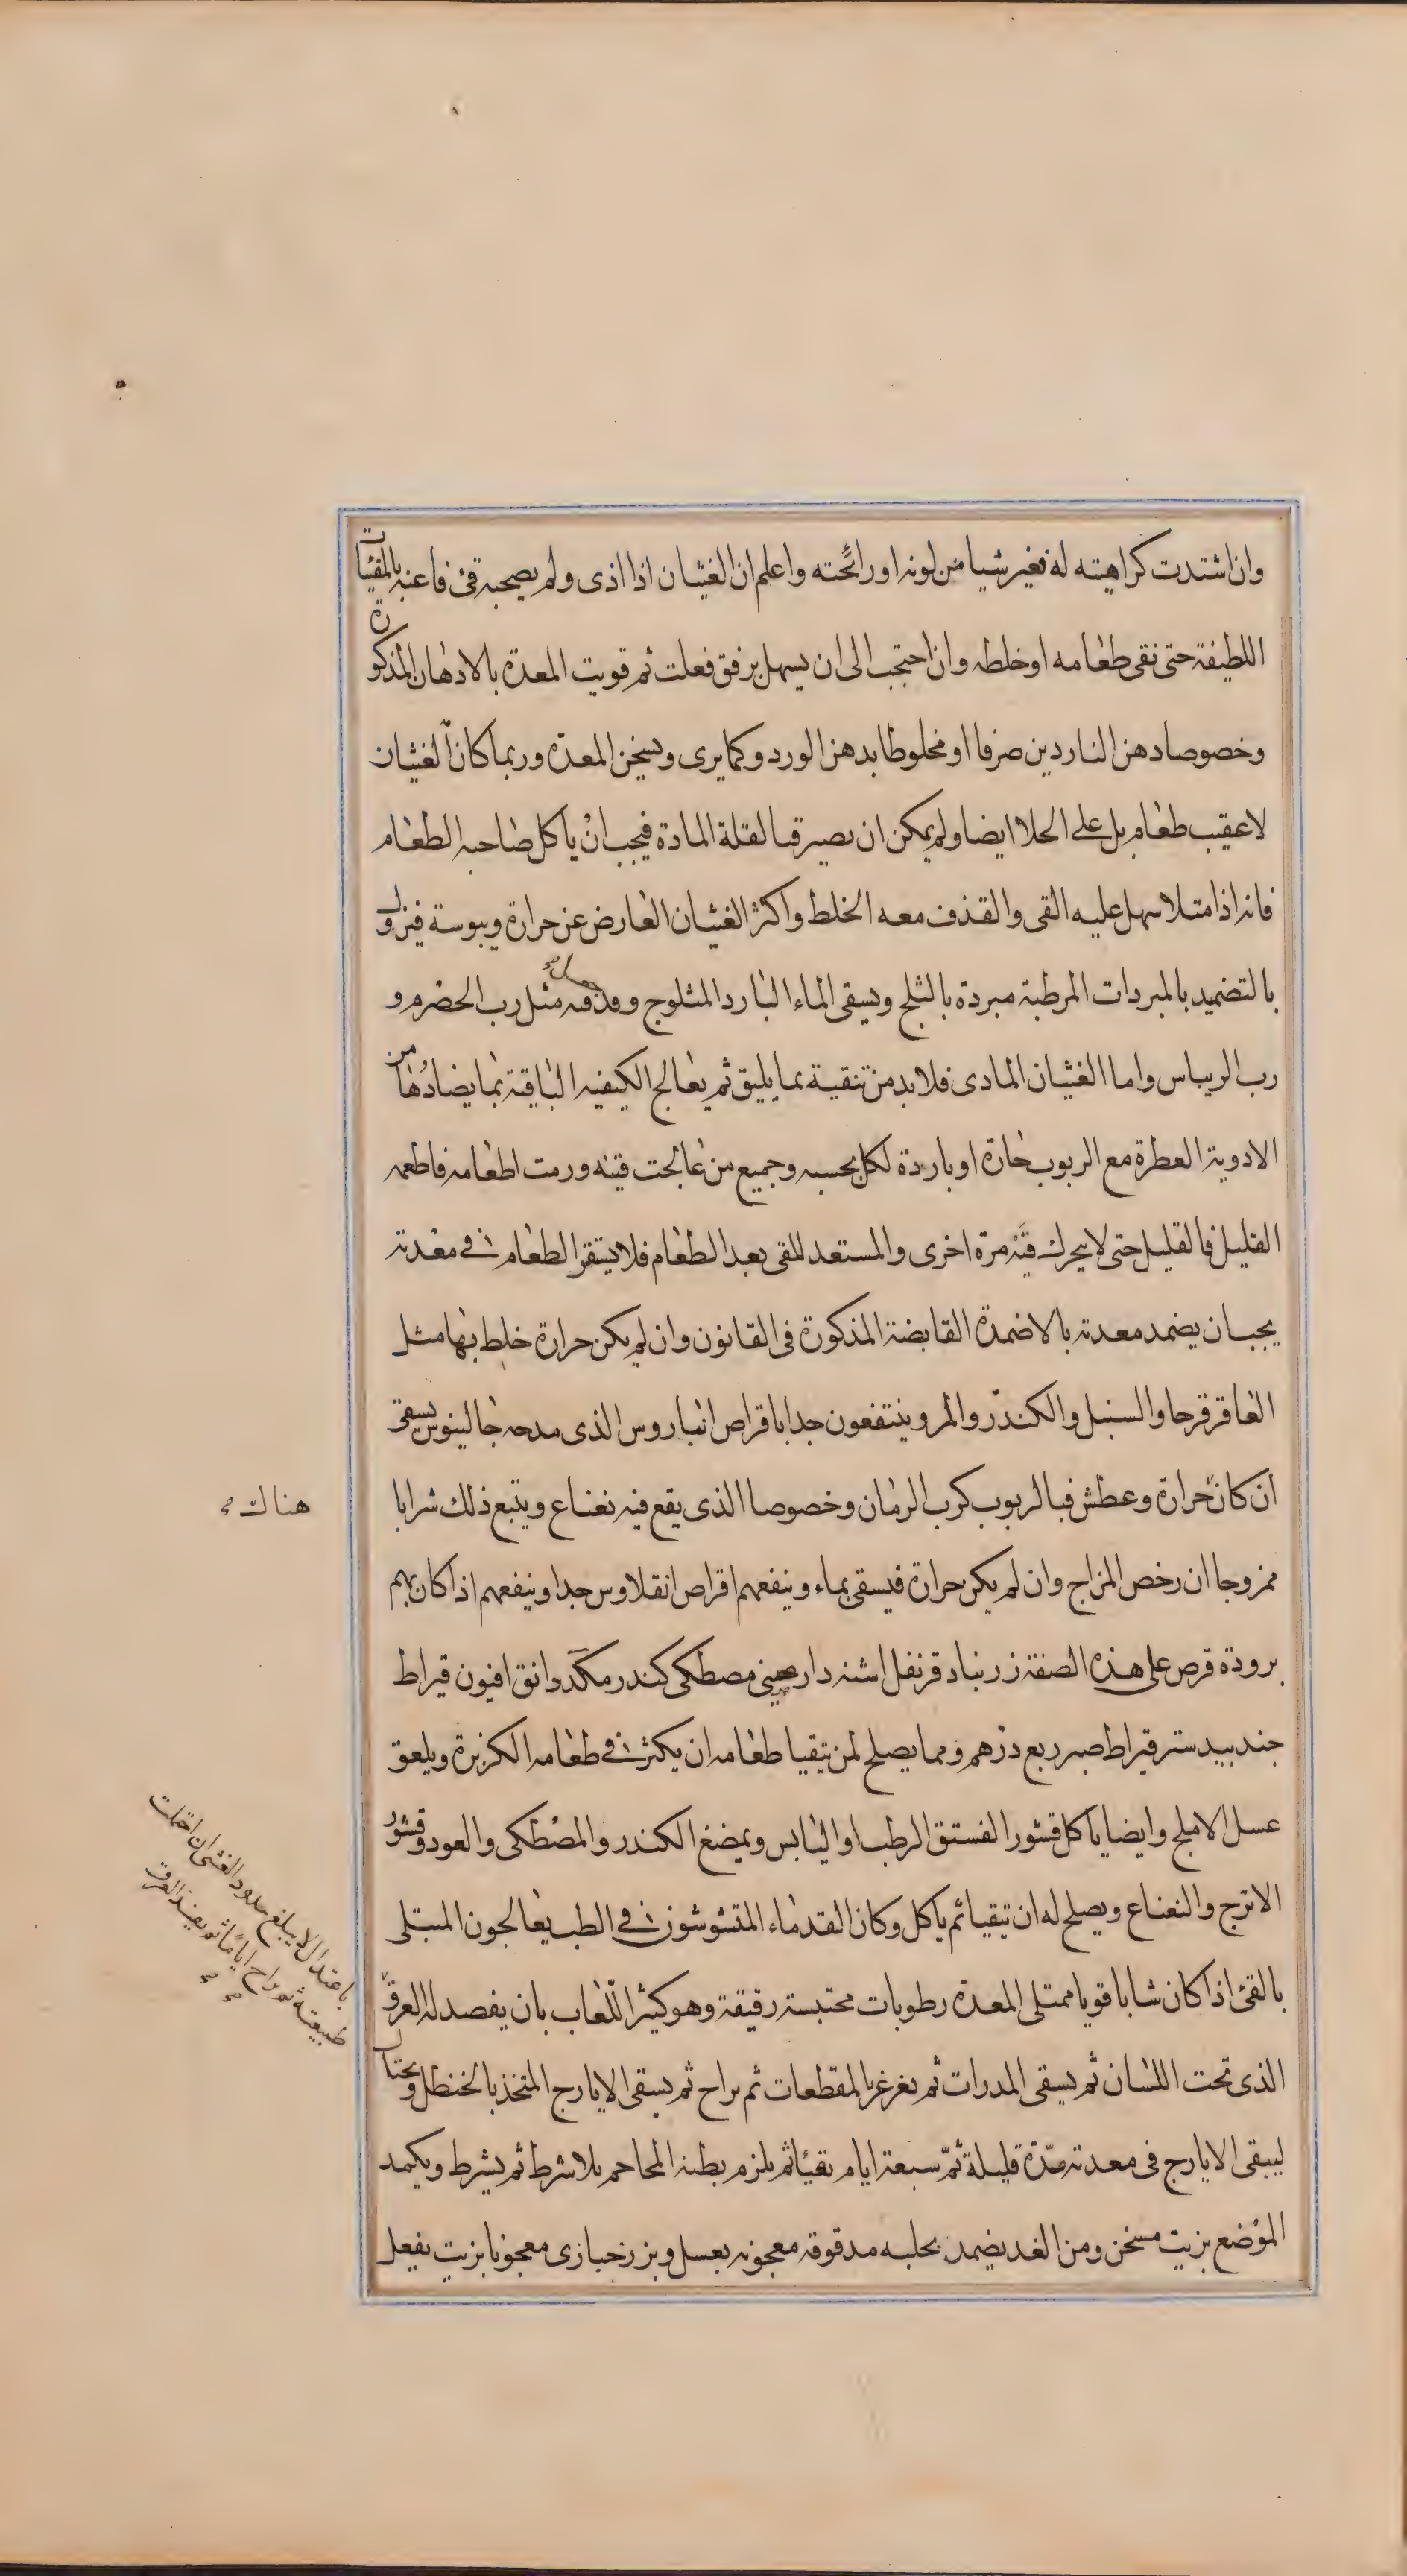 وان اشتدت كراهيته له فغير شيا من لونه او رائحته واعلم ان الغثيان اذا اذى ولم يصحبه قئ فاعنه بالمقيئات
اللطيفة حتى نقى طعامه او خلطه وان احتجب الى ان يسهل برفق فعلت ثم قويت المعدة بالادهان المذكورة
وخصوصا دهن الناردين صرفا او مخلوطا بدهن الورد وكما يرى ويسخن المعدة وربما كان الغثيان
لا عقيب طعام بل على الخلا ايضا ولم يمكن ان يصير قيا لقلة المادة فيجب ان ياكل صاحبه الطعام
فانه اذا امتلا سهل عليه القى والقذف معه الخلط واكثر الغثيان العارض عن حرارة ويبوسة فيزل و
بالتضميد بالمبردات المرطبة مبردة بالثلج ويسقى الماء البارد المثلوج مثل رب الحصرم و
رب الريباس واما الغثيان المادى فلا بد من تنقية بما يليق ثم يعالج الكيفيه الباقية بما يضادها من
الادوية العطرة مع الربوب حارة او باردة لكل بحسبه وجميع من عالجت قيئه ورمت اطعامه فاطعمه
القليل فالقليل حتى لا يحرك قيئه مرة اخرى والمستعد للقى بعد الطعام فلا يستقر الطعام فى معدته
يجب ان يضمد معدته بالاضمدة القابضة المذكورة فى القانون وان لم يكن حرارة خلط بها مثل
العاقرقرحا والسنبل والكندر والمر وينتفعون جدا باقراص انباروس الذى مدحه جالينوس يسقى
ان كان حرارة وعطش فبالربوب كرب الرمان وخصوصا الذى يقع فيه نعناع ويتبع ذلك شرابا
هناك
ممزوجا ان رخص المزاج وان لم يكن حرارة فيسقى بماء وينفعهم اقراص انقلاوس جدا وينفعهم اذا كان بهم
برودة قرص على هذه الصفة زرنباد قرنفل اشنه دارصينى مصطكى كندر مكد دانق افيون قيراط
جندبيدستر قيراط صبر ربع درهم ومما يصلح لمن تيقيا طعامه ان يكثر فى طعامه الكزبرة ويلعق
عسل الاملج وايضا ياكل قشور الفستق الرطب او اليابس ويمضغ الكندر والمصطكى والعود وقشور
الاترج والنعناع ويصلح له ان تيقيا ثم ياكل وكان القدماء المتشوشون فى الطب يعالجون المبتلى
بالقئ اذا كان شابا قويا ممتلى المعدة رطوبات محتبسة رقيقة وهو كثير اللعاب بان يفصد له العرق
باعتدال لا يبلغ حدود الغشى ان احتملت
طبيعته ثم يراح اياما ثم يفصد العرق
الذى تحت اللسان ثم يسقى المدرات ثم يغرغر بالمقطعات ثم يراح ثم يسقى الايارج المتخذ بالحنظل ويحتال
ليبقى الايارج فى معدته مدة قليلة ثم سبعة ايام تقيئا ثم يلزم بطنه المحاجم بلا شرط ثم يشرط ويكمد
الموضع بزيت مسخن ومن الغد يضمد بحلبه مدقوقه معجونه بعسل وبزر خبازى معجونا بزيت يفعل